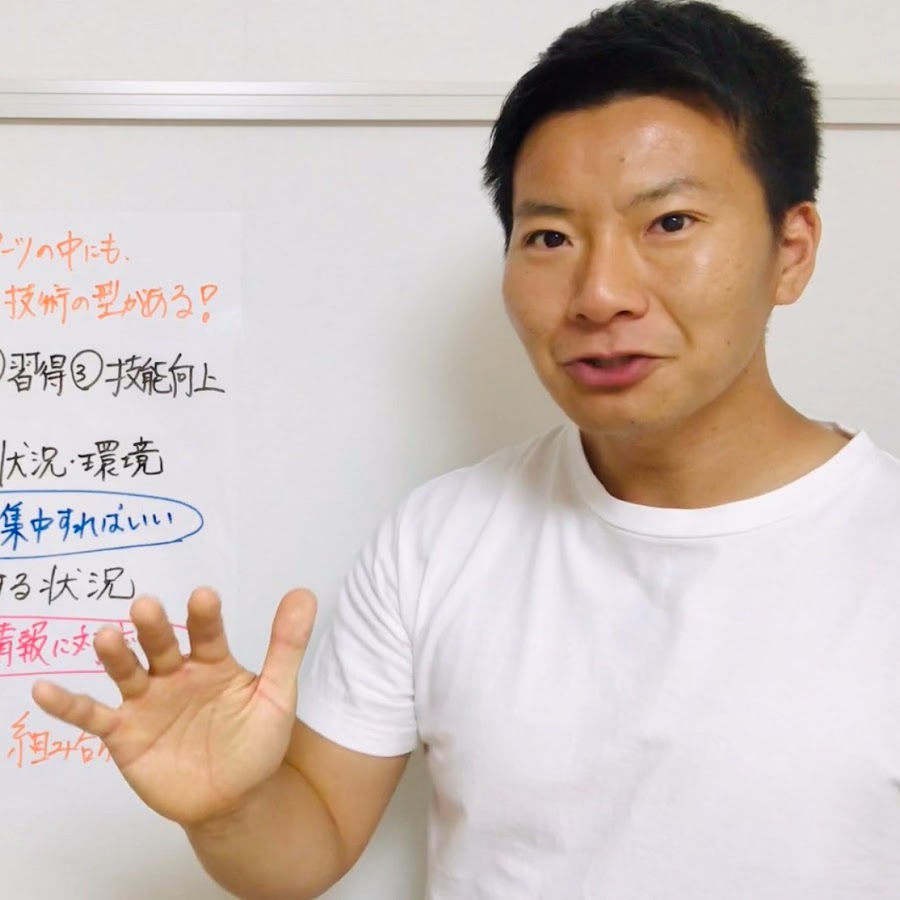 ーツの中にも、
技術の型がある!
習得③技能向上
状況・環境
集中すればいい
する状況
情報に対
組み合